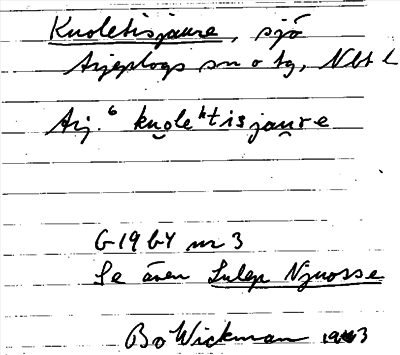 Kuoletisjaure, sjö
Arjeplogs sn o tg, Nbt l
Arj. ⁶ ku̯oleᵏtisjau̯re
G1967 nr 3
Se även Sulep Njuosse
Bo Wickman